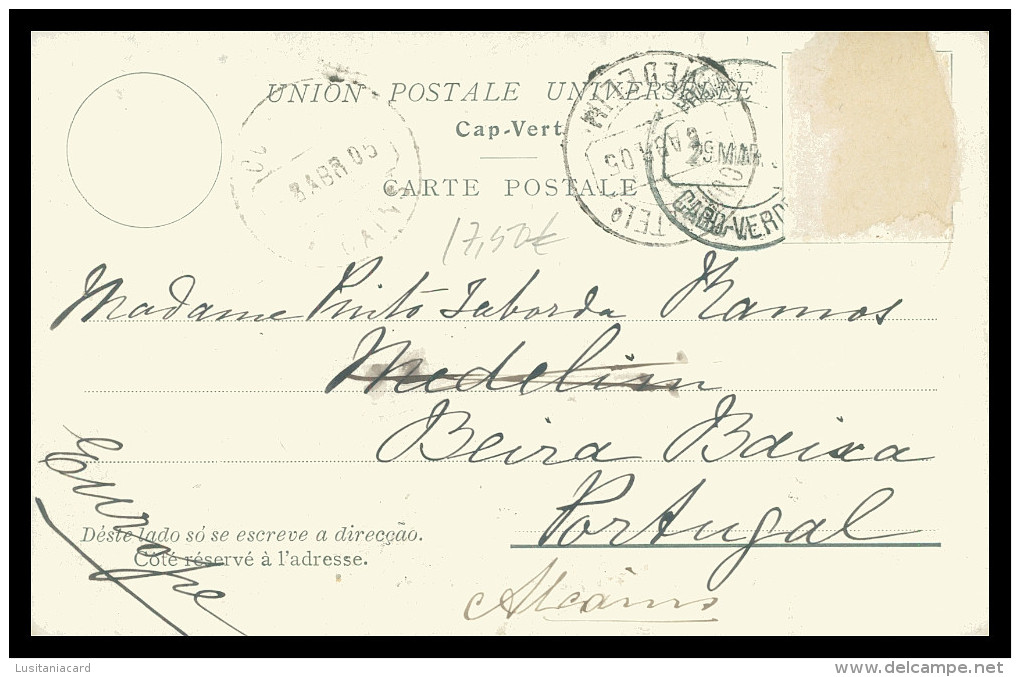 UNION POSTALE UNIVERSELLE
Cap-Vert
CARTE POSTALE
8 ABR 05
MEDELIM
6 ABR 05
29 MAR
CABO-VERDE
17,50€
Madame Pinto Taborda Ramos
Medelim
Beira Baixa
Portugal
Europe
Déste lado só se escreve a direcção.
Côté réservé à l'adresse.
Alcains
Lusitaniacard
www.delcampe.net